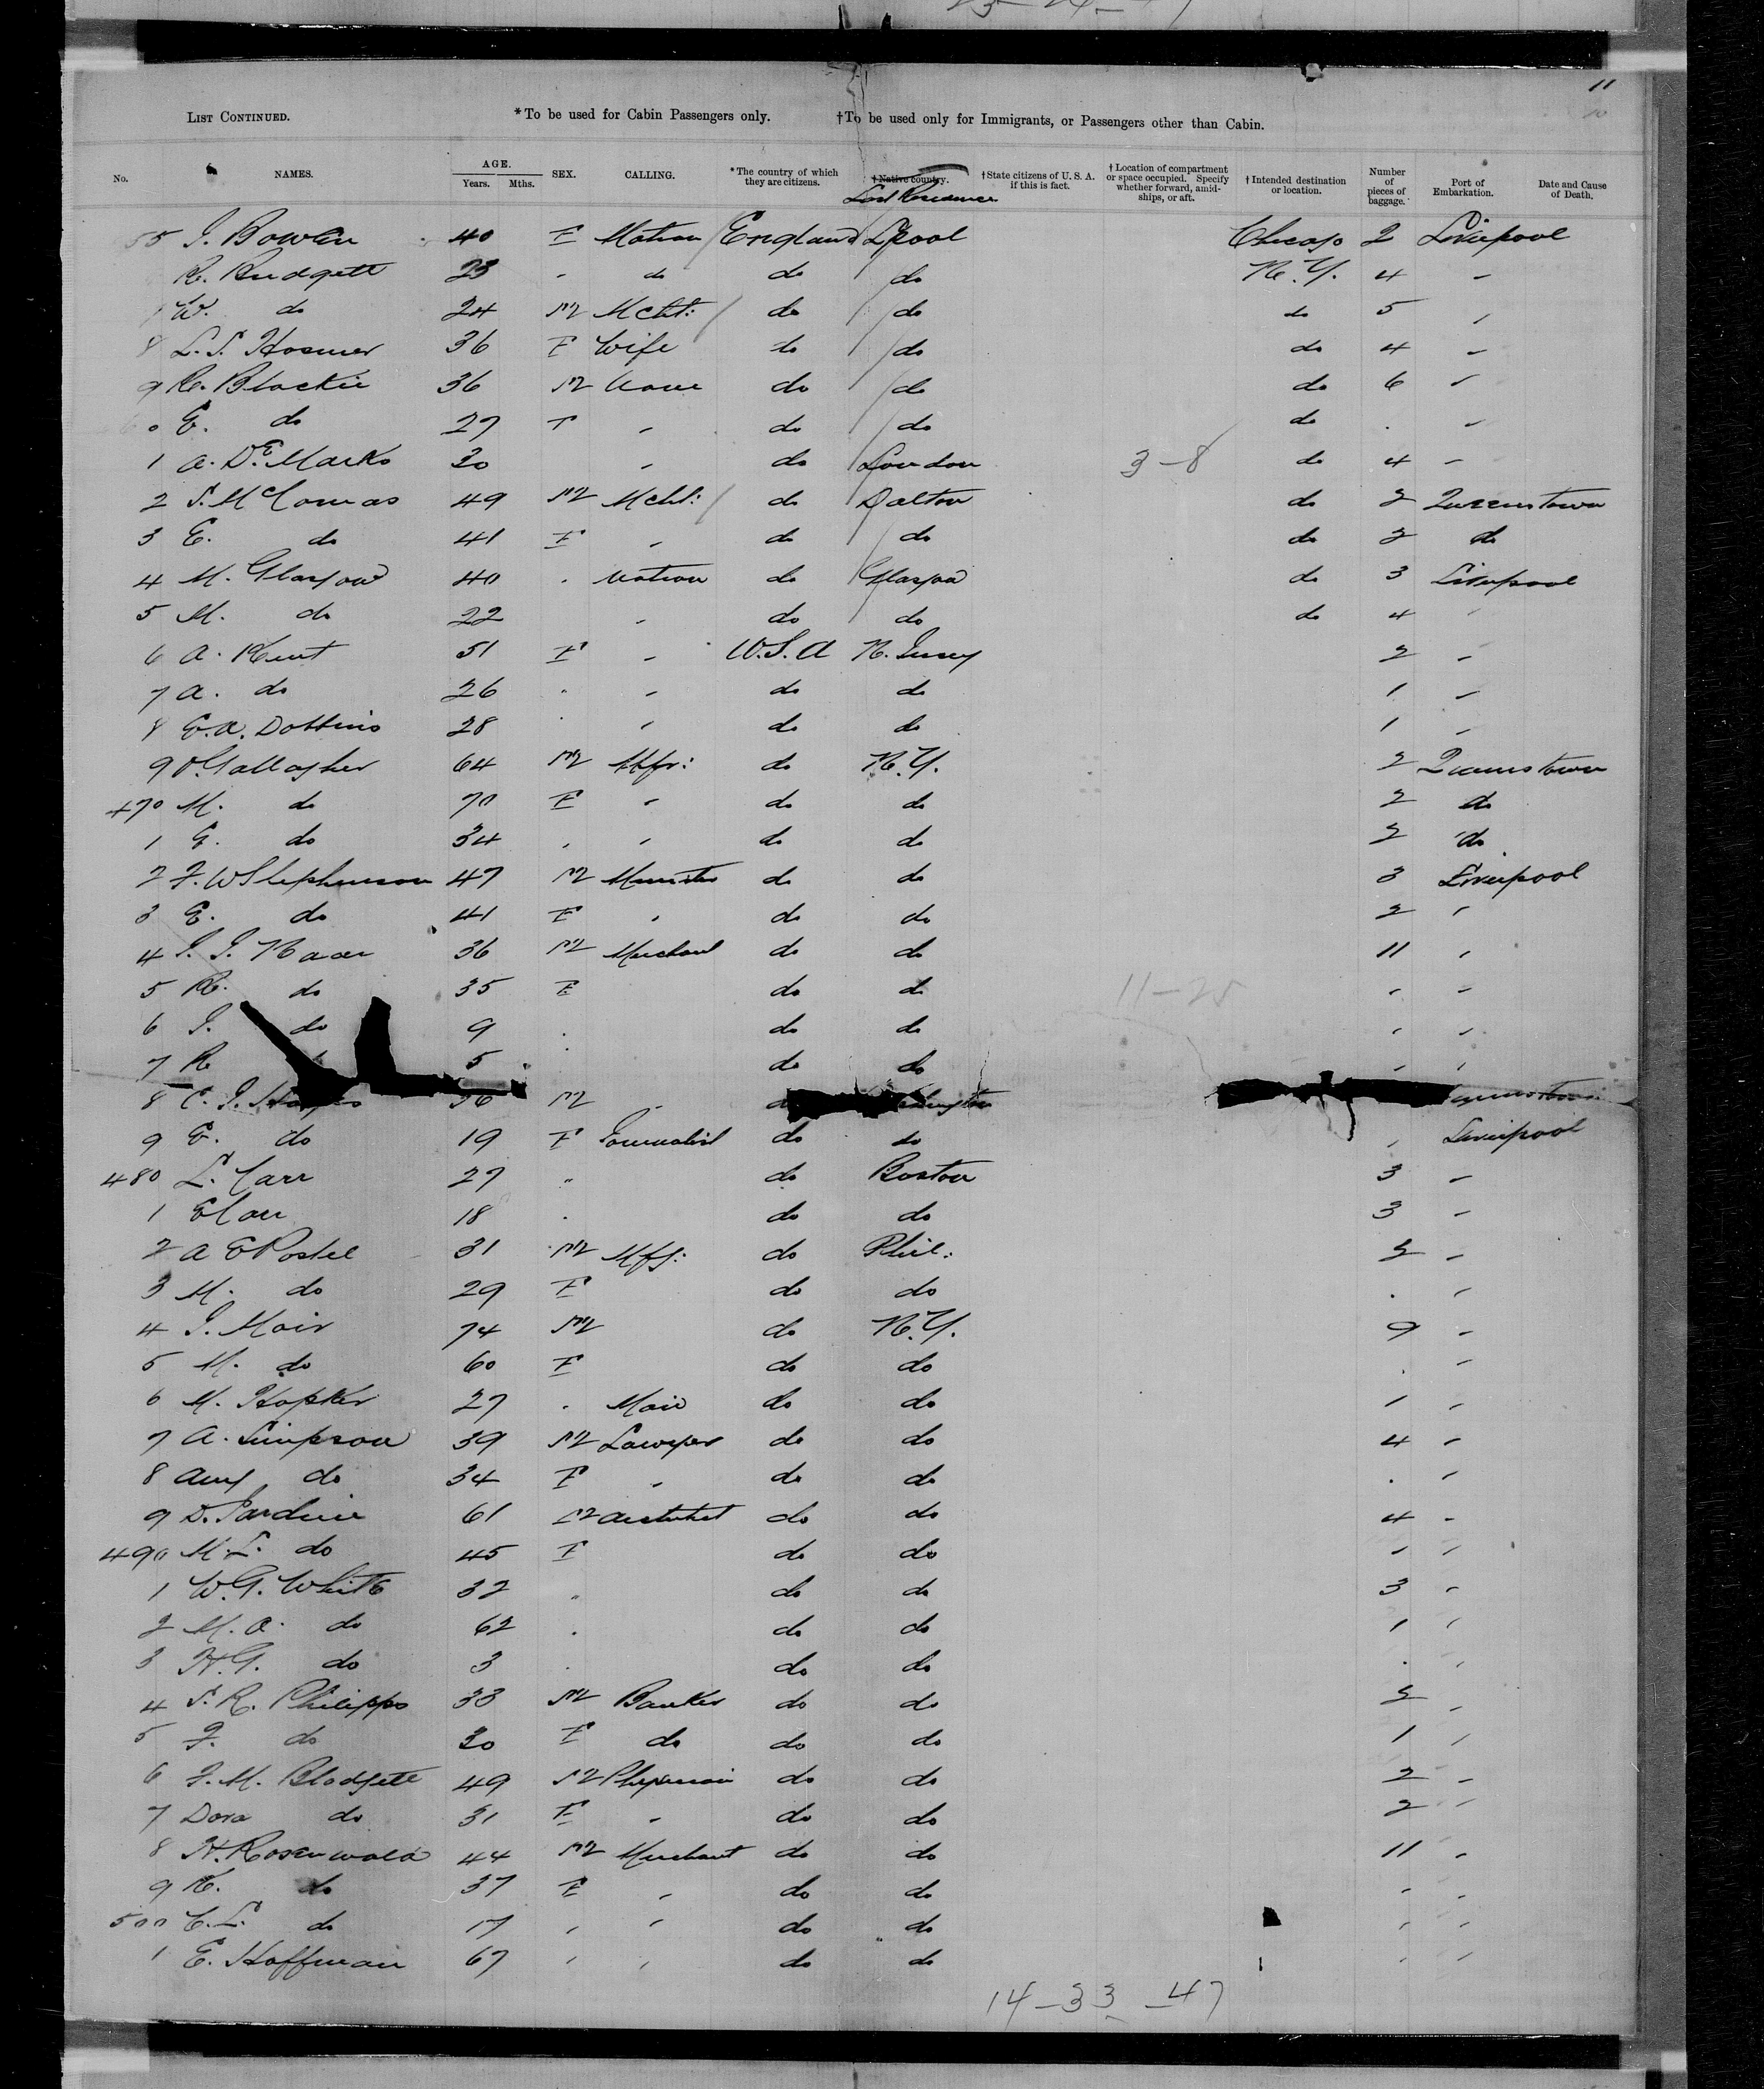 11
LIST CONTINUED. *To be used for Cabin Passengers only. †To be used only for Immigrants, or Passengers other than Cabin.
No. NAMES. AGE. Years. Mths. SEX. CALLING. *The country of which they are citizens. †Native country. Last Residence †State citizens of U. S. A. if this is fact. †Location of compartment or space occupied. Specify whether forward, amidships, or aft. †Intended destination or location. Number of pieces of baggage. Port of Embarkation. Date and Cause of Death.
55 J. Bowen 40 F Matron England L'pool Chicago 2 Liverpool
R. Budgett 23 " do do do N.Y. 4 "
W. do 24 M Mcht: do do do 5 "
8 L.S. Hosmer 36 F Wife do do do 4 "
9 R. Blackie 36 M None do do do 6 "
0 E. do 27 F " do do do "
1 A. De Marks 30 " do London 3-8 do 4 "
2 S. McComas 49 M Mcht: do Dalton do 2 Queenstown
3 E. do 41 F " do do do 2 do
4 M. Glasgow 40 " Matron do Glasgow do 3 Liverpool
5 M. do 22 " do do do 4 "
6 A. Kent 51 F " U.S.A N. Jersey 2 "
7 A. do 26 " " do do 1 "
8 E.A. Dobbins 28 " " do do 1 "
9 Gallagher 64 M Mfr: do N.Y. 2 Queenstown
470 M. do 70 F " do do 2 do
1 E. do 34 " " do do 2 do
2 F. W Stephenson 47 M Minister do do 3 Liverpool
3 E. do 41 F " do do 2 "
4 J. J. Naar 36 M Merchant do do 11 "
5 R. do 35 F do do 11-25 " "
6 J. do 9 " do do " "
7 R 5 do do " "
8 C. J. M "
9 E. do 19 F Journalist do do " Liverpool
480 L. Carr 27 " do Boston 3 "
1 E Carr 18 " do do 3 "
2 A E Postel 31 M Mfg: do Phil: 2 "
3 M. do 29 F do do " "
4 J. Moir 74 M do N.Y. 9 "
5 M. do 60 F do do " "
6 M. Hopker 27 " Maid do do 1 "
7 A. Simpson 39 M Lawyer do do 4 "
8 Amy do 34 F " do do " "
9 D. Jardine 61 M Architect do do 4 "
490 M.L. do 45 F do do " "
1 W.G. White 32 " do do 3 "
2 M.A. do 62 " do do 1 "
3 H.G. do 3 " do do " "
4 S. R. Philipps 33 M Banker do do 2 "
5 F. do 30 F do do do 1 "
6 F. M. Blodgett 49 M Physician do do 2 "
7 Dora do 31 F " do do 2 "
8 H. Rosenwald 44 M Merchant do do 11 "
9 R. do 37 F " do do " "
500 C.L. do 17 " " do do " "
1 E. Hoffman 67 " " do do " "
14-33-47